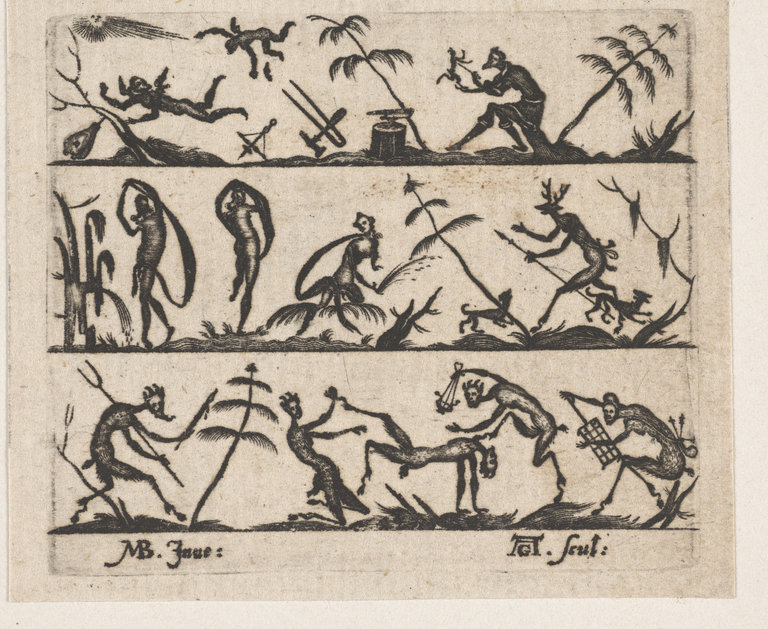 MB. Inue:
AGI. scul: